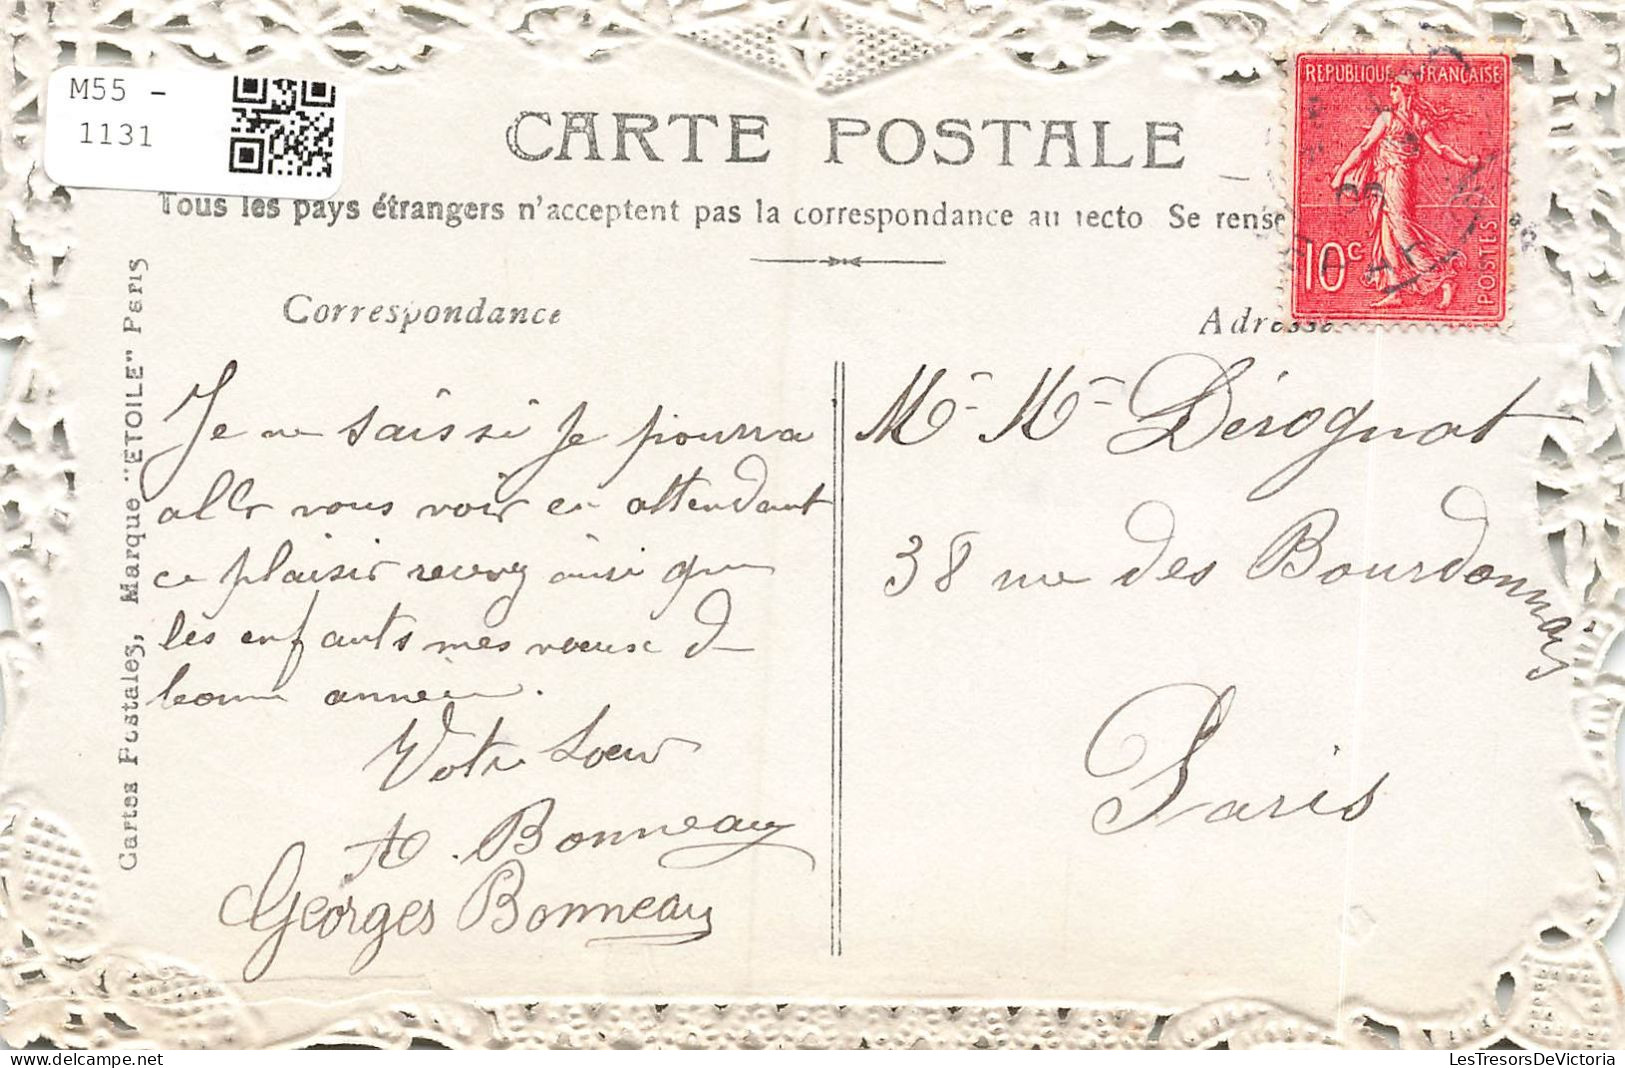 M55 -
1131
REPUBLIQUE FRANÇAISE
10c
POSTES
CARTE POSTALE
Tous les pays étrangers n'acceptent pas la correspondance au recto Se rense
Correspondance
Adresse
Cartes Postales, Marque "ETOILE" Paris
Je ne sais si Je pourra
allr vous voir en attendant
ce plaisir recevez ainsi que
les enfants mes voeux de
bonne année.
Votre Soeur
A. Bonneau
Georges Bonneau
Mr Me Dérognat
38 rue des Bourdonnais
Paris
LesTresorsDeVictoria